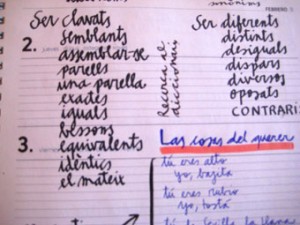 sinònims
FEBRERO
Ser clavats
2. semblants
assemblar-se
parells
una parella
exactes
iguals
bessons
3. equivalents
idèntics
el mateix
Recerca al
diccionari
Ser diferents
distints
desiguals
dispars
diversos
oposats
CONTRARIS
Las cosas del querer
tú eres alto
yo, bajita
tú eres rubio
yo, tostá
tú de Sevilla la llana